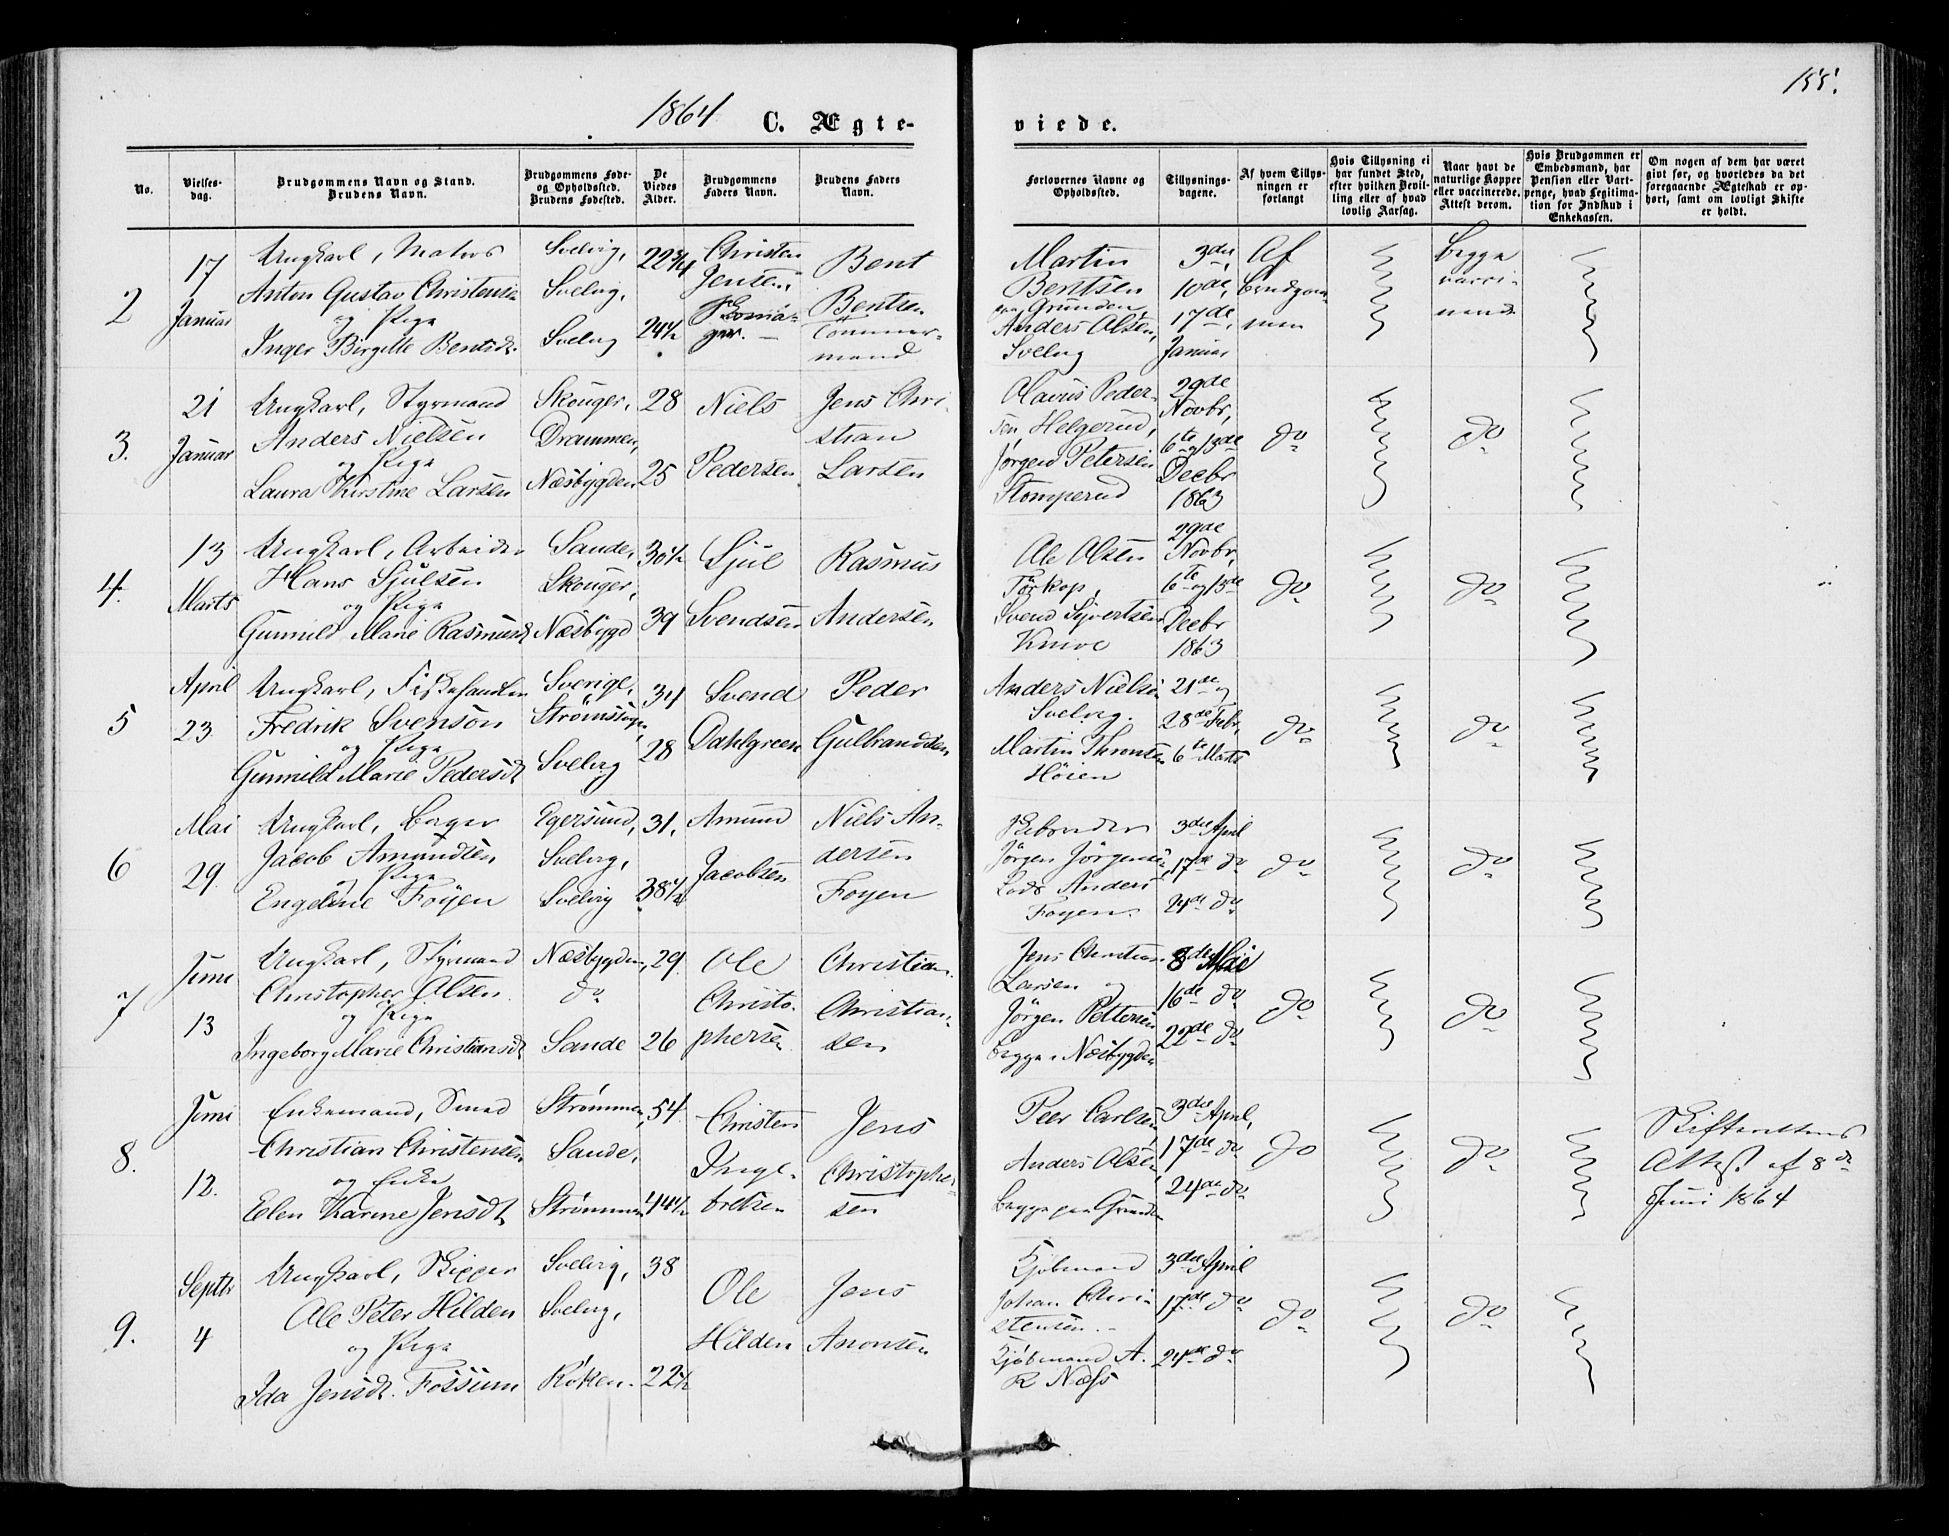 1864
C. Ægte-
viede.
155.
No.
Vielses-
dag.
Brudgommens Navn og Stand.
Brudens Navn.
Brudgommens Føde-
og Opholdsted.
Brudens Fødested.
De
Viedes
Alder.
Brudgommens
Faders Navn.
Brudens Faders
Navn.
Forlovernes Navne og
Opholdssted.
Tillysnings-
dagene.
Af hvem Tillys-
ningen er
forlangt
Hvis Tillysning ei
har fundet Sted,
efter hvilken Bevil-
ling eller af hvad
lovlig Aarsag.
Naar havt de
naturlige Kopper
eller vaccinerede.
Attest derom.
Hvis Brudgommen er
Embedsmand, har
Pension eller Vart-
penge, hvad Legitima-
tion for Indskud i
Enkekassen.
Om nogen af dem har været
givt før, og hvorledes da det
foregaaende Ægteskab er op-
hørt, samt om lovligt Skifte
er holdt.
2
17
Januar
Ungkarl, Matros
Anton Gustav Christensen
og Pige
Inger Birgitte Bentsdt.
Svelvig,
Svelvig,
Svelvig
22 3/4
24 1/2
Christen
Jensen,
Bent
Bentsen
Tømmer-
mand
Martin
Bentsen
paa Grunden,
Anders Olsen,
Svelvig
3die,
10de,
17de,
Januar
Af
Brudgom-
men
Begge
vacci-
nerede
3.
21
Januar
Ungkarl, Styrmand
Anders Nielsen
og Pige
Laura Kirstine Larsen
Skouger,
Drammen,
Næsbygden
28
25
Niels
Pedersen
Jens Chri-
stian
Larsen
Olavus Peder-
sen Helgerud,
Jørgen Petersen
Stomperud
29de
Novbr,
6te og 13de
Decbr
1863
do
do
4.
13
Marts
Ungkarl, Arbeider
Hans Sjulsen
og Pige
Gunnild Marie Rasmusdt
Sande,
Skouger,
Næsbygd
30 1/2
39
Sjul
Svendsen
Rasmus
Andersen
Ole Olsen
Tørkop,
Svend Syvertsen
Knive
29de
Novbr,
6te og 13de
Decbr
1863
do
do
5
April
23
Ungkarl, Fiskehandler
Fredrik Svenson
og Pige
Gunnild Marie Pedersdt
Sverige,
Svelvig
34
28
Svend
Dahlgreen
Peder
Gulbrandsen
Anders Nielsen
Svelvig.
Martin Thronsen
Høien
21de og
28de Febr,
6te Marts
do
do
6
Mai
29
Ungkarl, Bager
Jacob Amundsen
og Pige
Engeline Føyen
Egersund,
Svelvig,
Svelvig
31,
38 1/2
Amund
Jacobsen
Niels An-
dersen
Foyen
Jørgen Jørgensen
Lods Anders
Foyen
3die April
17de do
24de do
do
do
7
Juni
13
Ungkarl, Styrmand
Christopher Olsen
og Pige
Ingeborg Marie Christiansdt
Næsbygden,
do
Sande
29
26
Ole
Christo-
phersen
Christian
Christian-
sen
Jens Christian
Larsen og
Jørgen Pettersen
begge Næsbygden
8de Mai
16de do
22de do
do
do
8.
Juni
12.
Enkemand, Smed
Christian Christensen
og Enke
Elen Karine Jensdt
Strømmen,
Sande,
Strømmen
54
44 1/2
Christen
Inge-
bretsen
Jens
Christopher-
sen
Peer Carlsen,
Anders Olsen,
begge paa Grunden
3die April,
17de do
24de do
do
do
Skifterettens
Attest af 8de
Juni 1864
9.
Septbr
4
Ungkarl, Skipper
Ole Peter Hilden
og Pige
Ida Jensdt. Fossum
Svelvig,
Svelvig,
Røken.
38
22 1/2
Ole
Hilden
Jens
Aronsen
Kjøbmand
Johan Chri-
stensen.
Kjøbmand A.
R Næss
3die April
17de do
24de do
do
do